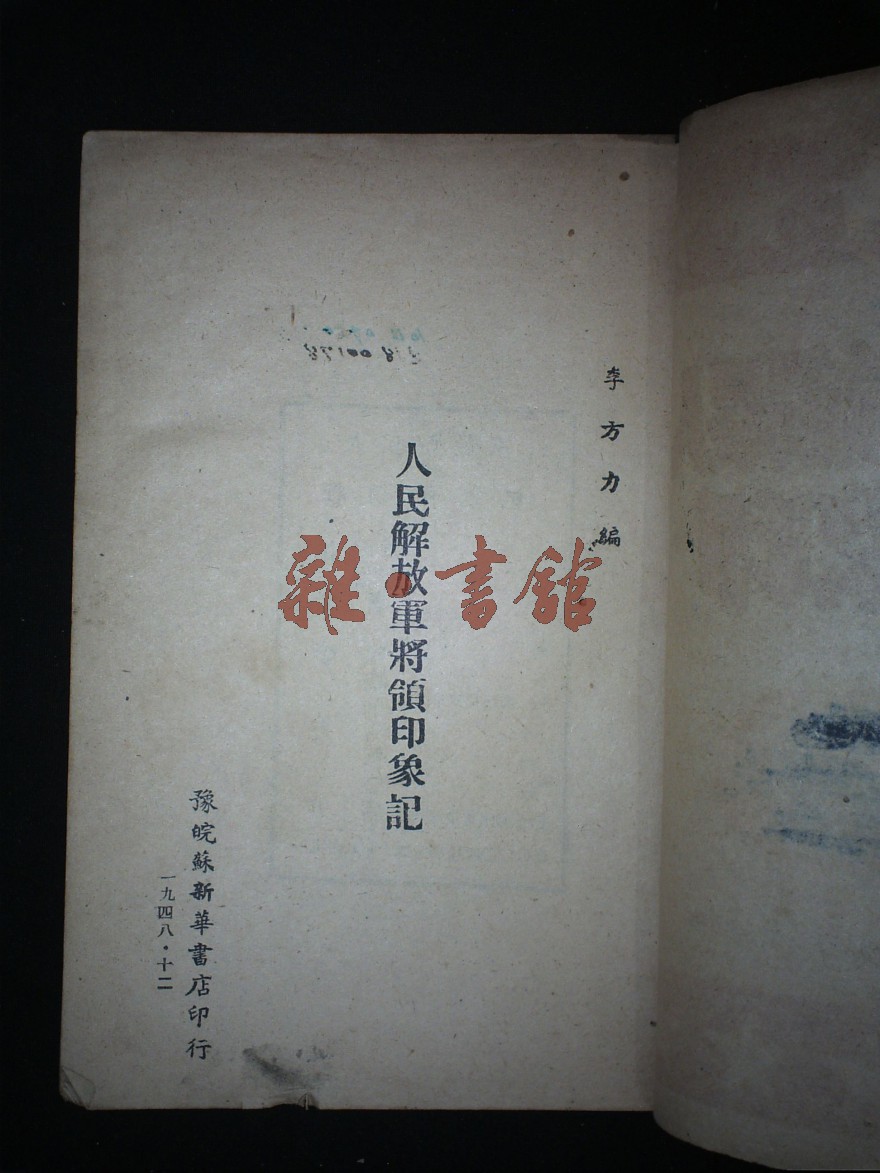 李方力編
人民解放軍將領印象記
豫皖蘇新華書店印行
一九四八·十二
雜·書館